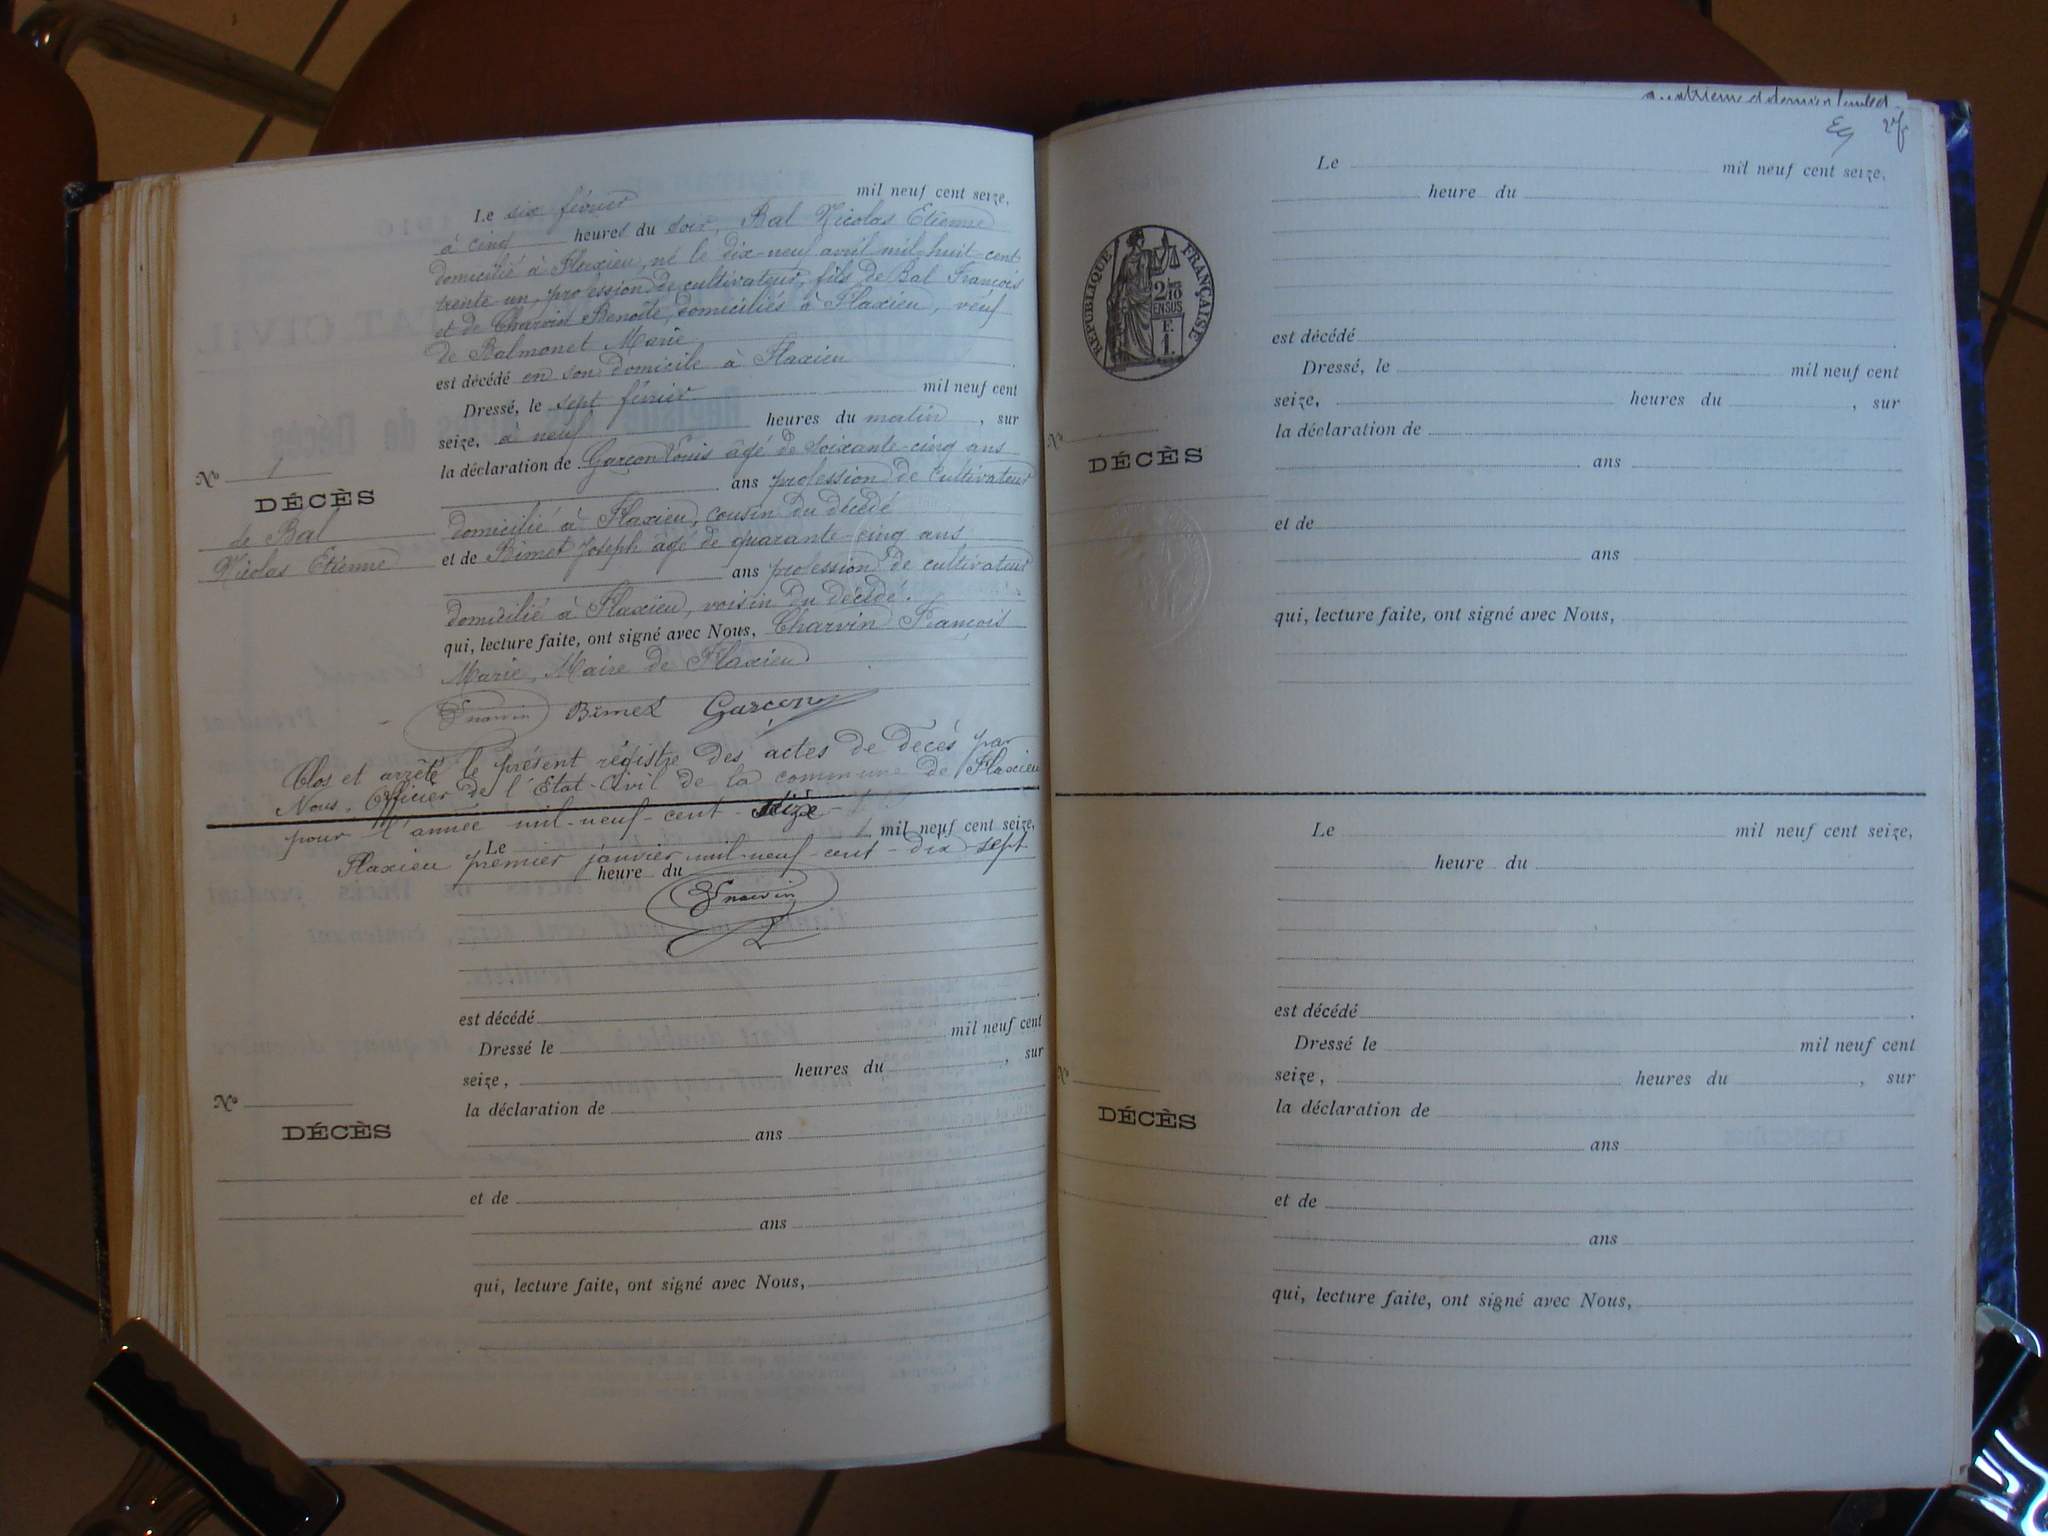 Le six février mil neuf cent seize,
à cinq heures du soir, Bal Nicolas Etienne
domicilié à Flaxieu, né le dix-neuf avril mil-huit-cent
trente-un, profession de cultivateur, fils de Bal François
et de Charvin Benoîte, domiciliés à Flaxieu, veuf
de Balmonet Marie
est décédé en son domicile à Flaxieu
Dressé, le sept février mil neuf cent
seize, à neuf heures du matin, sur
la déclaration de Garcon Louis âgé de soixante-cinq ans
ans profession de cultivateur
domicilié à Flaxieu, cousin du décédé
et de Bimet Joseph âgé de quarante-cinq ans
ans profession de cultivateur
domicilié à Flaxieu, voisin du décédé.
qui, lecture faite, ont signé avec Nous, Charvin François
Marie, Maire de Flaxieu
Nº 1
DÉCÈS
de Bal
Nicolas Etienne
Bimet Garcon
Clos et arrêté le présent régistre des actes de décès par
Nous, Officier de l'Etat-Civil de la commune de Flaxieu
pour l'année mil-neuf-cent-seize
Flaxieu premier janvier mil-neuf-cent-dix-sept
Le mil neuf cent seize,
heure du
est décédé
Dressé le mil neuf cent
seize, heures du , sur
la déclaration de
ans
et de
ans
qui, lecture faite, ont signé avec Nous,
Nº
DÉCÈS
27
Le mil neuf cent seize,
heure du
RÉPUBLIQUE FRANÇAISE
2/10
EN SUS
F.
1.
est décédé
Dressé, le mil neuf cent
seize, heures du , sur
la déclaration de
ans
et de
ans
qui, lecture faite, ont signé avec Nous,
Nº
DÉCÈS
Le mil neuf cent seize,
heure du
est décédé
Dressé le mil neuf cent
seize, heures du , sur
la déclaration de
ans
et de
ans
qui, lecture faite, ont signé avec Nous,
Nº
DÉCÈS